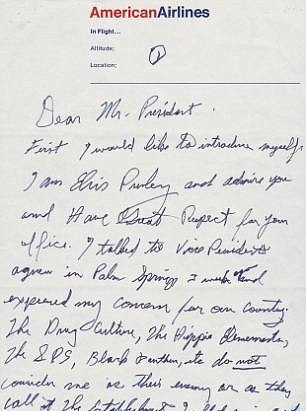 AmericanAirlines
In Flight...
Altitude;
Location;
1
Dear Mr. President.
First I would like to introduce myself.
I am Elvis Presley and admire you
and Have Great Respect for your
office. I talked to Vice President
Agnew in Palm Springs 3 weeks ago and
expressed my concern for our country.
The Drug Culture, The Hippie Elements,
The SDS, Black Panthers, etc do not
consider me as their enemy or as they
call it The Establishment. I